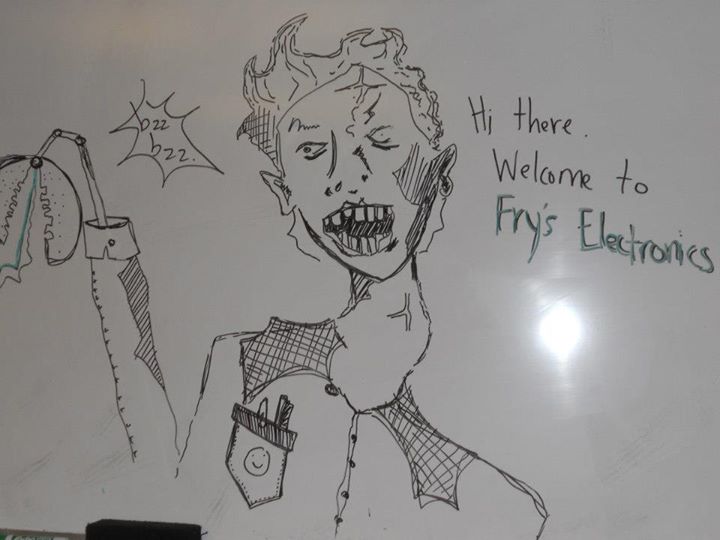 bzz
bzz.
Hi there.
Welcome to
Fry's Electronics